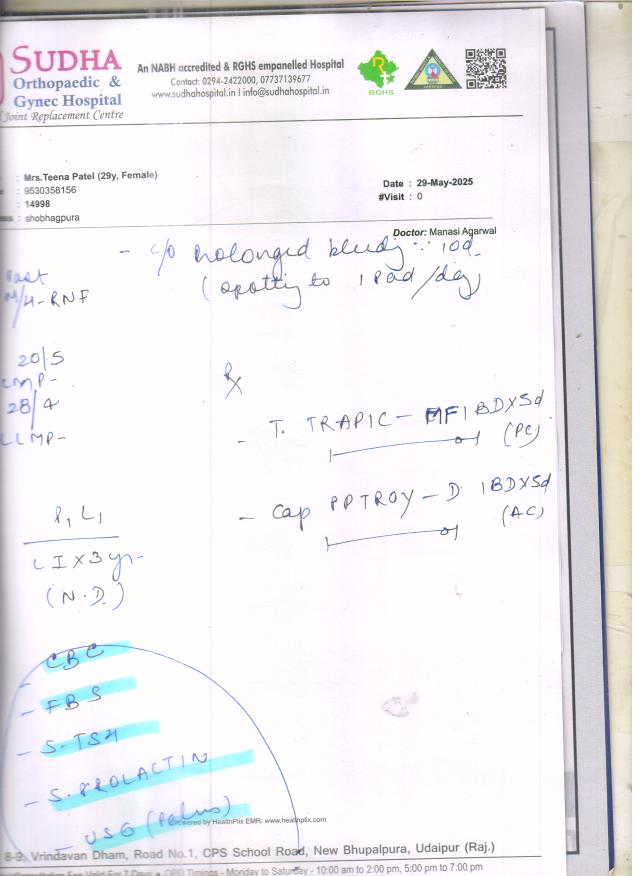 SUDHA
Orthopaedic &
Gynec Hospital
Joint Replacement Centre
An NABH accredited & RGHS empanelled Hospital
Contact: 0294-2422000, 07737139677
www.sudhahospital.in I info@sudhahospital.in
RGHS
: Mrs.Teena Patel (29y, Female)
: 9530358156
: 14998
: shobhagpura
Date : 29-May-2025
#Visit : 0
Doctor: Manasi Agarwal
- c/o Prolonged bleeding 10d
(spotting to 1 Pad/day)
Past
M/H-RNF
20/5
LMP-
28/4
LLMP-
Rx
- T. TRAPIC-MF 1BDX5d
(PC)
- Cap PPTROY-D 1BDX5d
(AC)
P1 L1
LIX3yr-
(N.D.)
- CBC
- FBS
- S.TSH
- S.PROLACTIN
- USG (Pelvis)
Powered by HealthPlix EMR. www.healthplix.com
8-9, Vrindavan Dham, Road No.1, CPS School Road, New Bhupalpura, Udaipur (Raj.)
Consultation Fee Valid For 7 Days • OPD Timings - Monday to Saturday - 10:00 am to 2:00 pm, 5:00 pm to 7:00 pm